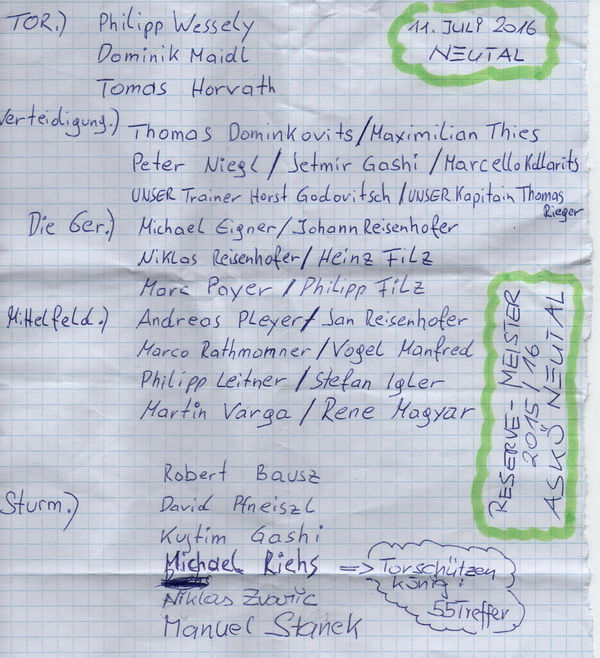 TOR.) Philipp Wessely
Dominik Maidl
Tomas Horvath
11. JULI 2016
NEUTAL
Verteidigung.) Thomas Dominkovits/Maximilian Thies
Peter Niegl / Jetmir Gashi / Marcello Kollarits
UNSER Trainer Horst Godovitsch / UNSER Kapitain Thomas
Rieger
Die 6er.) Michael Eigner/Johann Reisenhofer
Niklas Reisenhofer/Heinz Filz
Marc Payer / Philipp Filz
Mittelfeld.) Andreas Pleyer/Jan Reisenhofer
Marco Rathmanner / Vogel Manfred
Philipp Leitner / Stefan Igler
Martin Varga / Rene Magyar
RESERVE-MEISTER
2015/16
ASKÖ NEUTAL
Robert Bausz
Sturm.) David Pfneiszl
Kujtim Gashi
Michael Riehs => Torschützen
könig!
55 Treffer
Niklas
Manuel Stanek